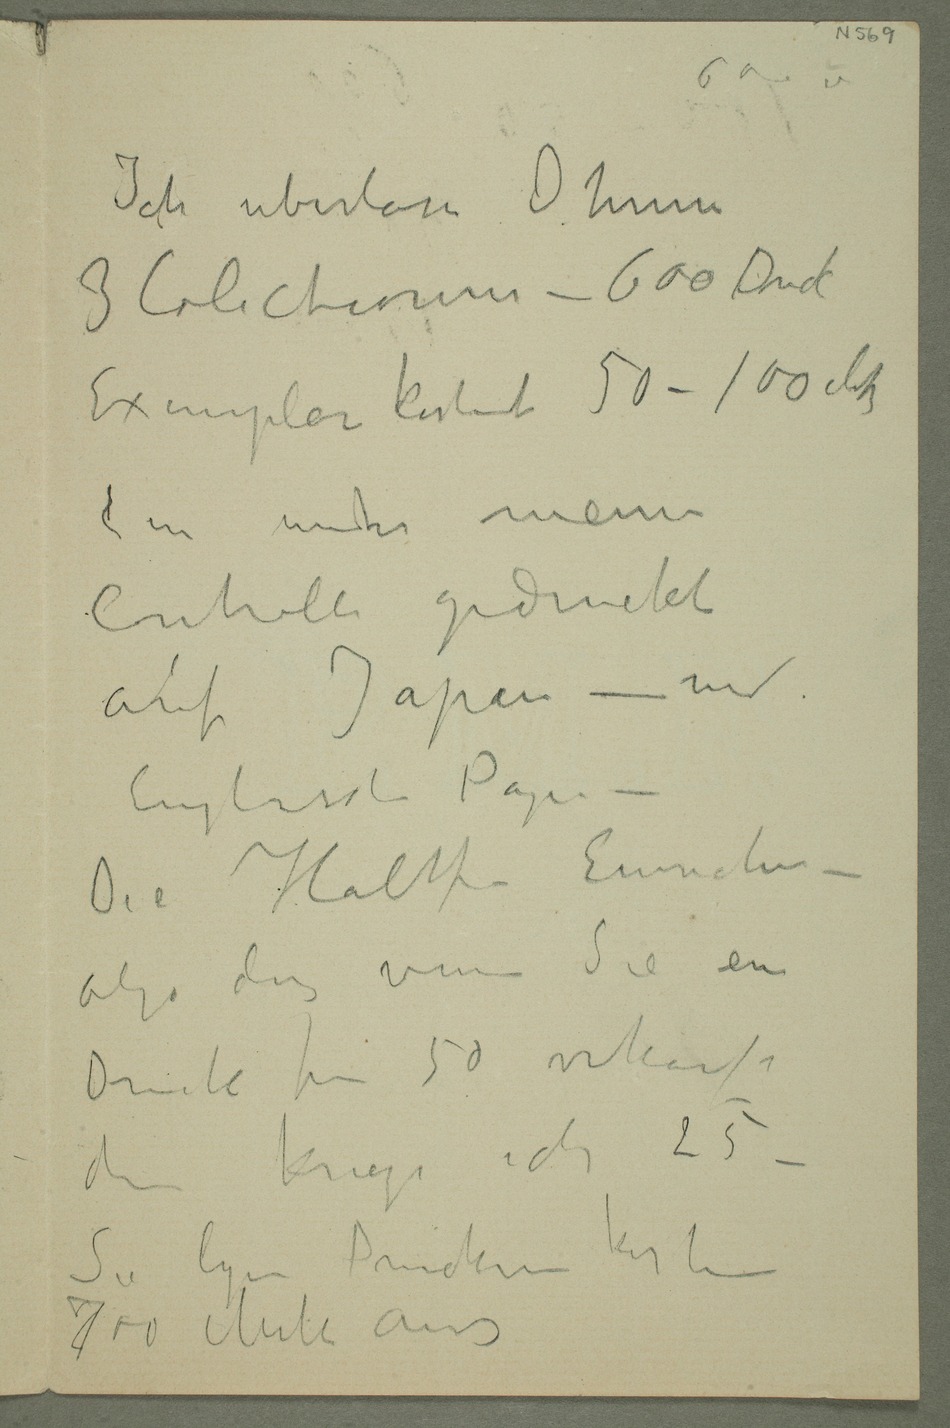 N569
600
Ich uberlasse Ihnen
3 Colectionen – 600 Druck
Exemplar kostent 50 – 100 Mk
Ein unter meine
Controlle gedruckt
auf Japan – und
Englische Papir –
Die Halfte Einnahm –
also das venn Sie ein
Druck für 50 verkauft
den kriege ich 25 –
Sie legen Druckenkosten
700 Mark aus